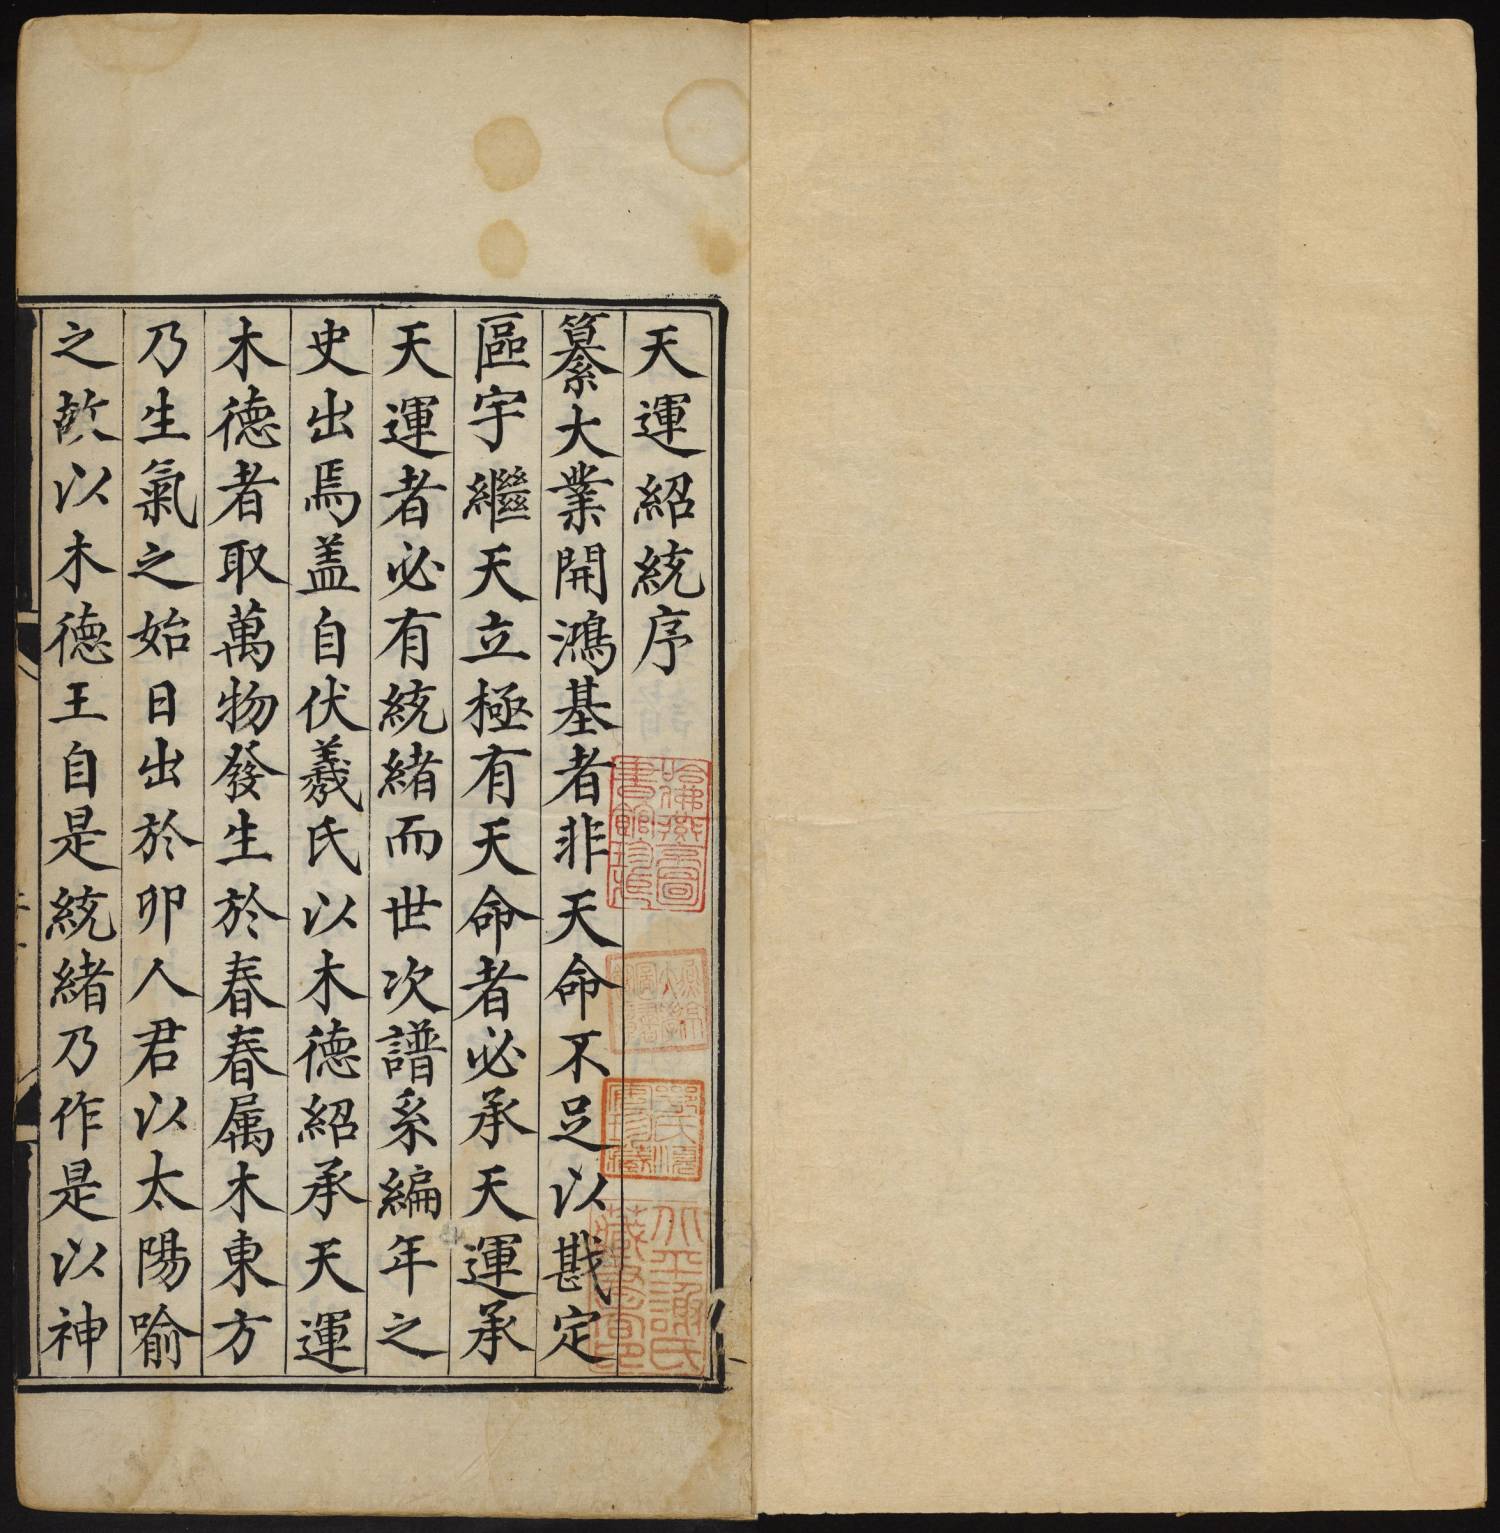 天運紹統序
纂大業開鴻基者非天命不足以戡定
區宇繼天立極有天命者必承天運承
天運者必有統緒而世次譜系編年之
史出焉盖自伏羲氏以木德紹承天運
木德者取萬物發生於春春属木東方
乃生氣之始日出於卯人君以太陽喻
之故以木德王自是統緒乃作是以神
哈佛燕京圖書館珍藏
大興謝氏藏書印